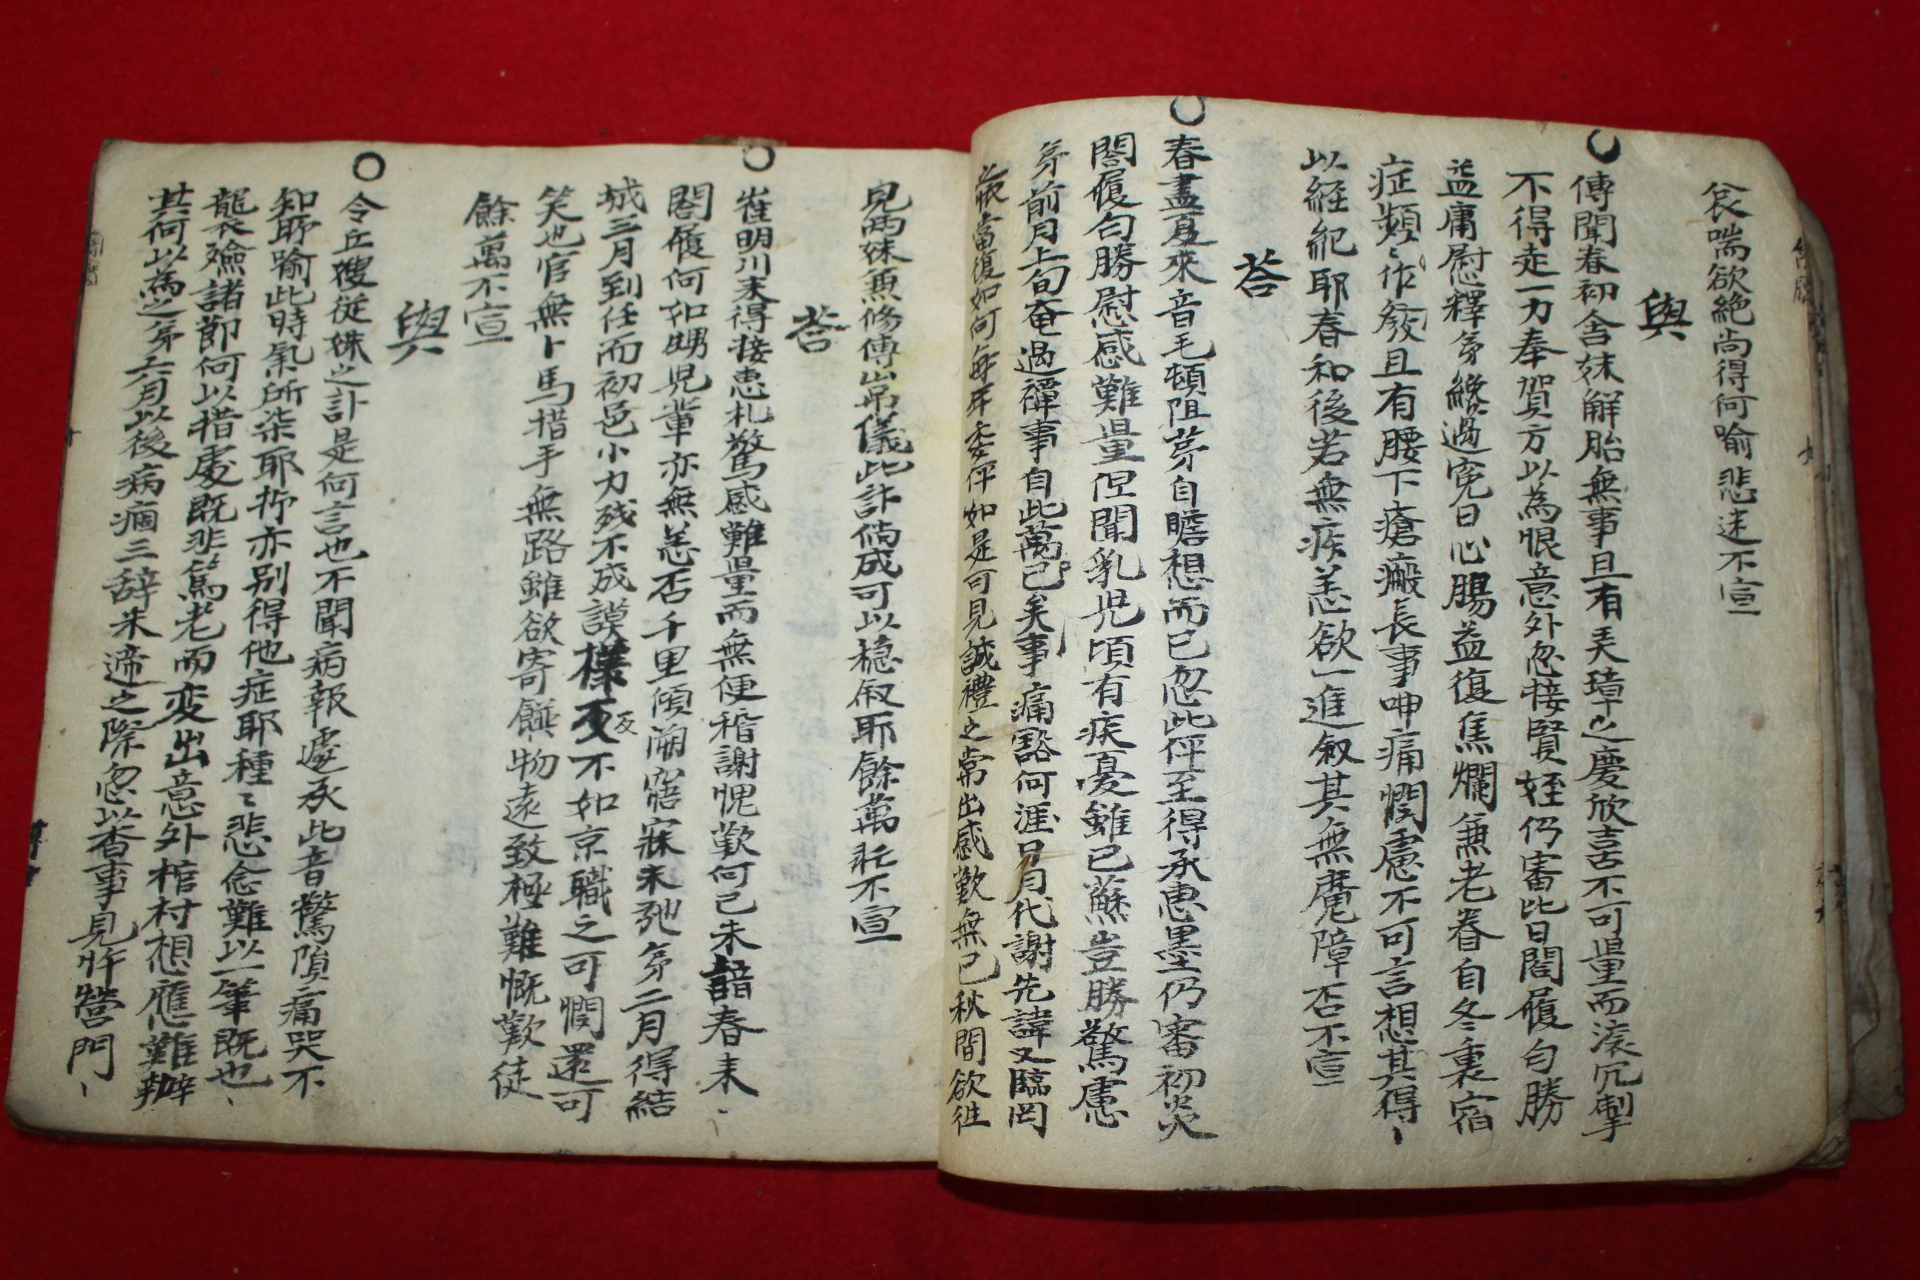 喘欲絶尚得何喻悲迷不宣
與
傳聞春初舍妹解胎無事且有弄璋之慶欣喜不可量而滚冗掣
不得走一力奉賀方以為恨意外忽接賢姪仍審比日閤履勻勝
益庸慰釋弟纔過寃日心膓益復焦爛兼老眷自冬裏宿
症類〻作發且有腰下瘡瘢長事呻痛悶慮不可言想其得〻
以経紀耶春和後若無疾恙欲一進叙其無魔障否不宣
荅
春盡夏來音毛頓阻茅自瞻想而已忽此伻至得承惠墨仍審初炎
閤履勻勝慰感難量但聞乳児頃有疾憂雖已蘇豈勝驚慮
弟前月上旬奄過禫事自此萬已矣事痛豁何涯日月代謝先諱又臨罔
當復如何每年委伻如是可見誠禮之常出感歎無已秋間欲往
見两妹兼修傳 儀此計倘成可以穏叙耶餘萬 不宣
荅
崔明川末得接惠札驚感難量而無便稽謝愧歎何已未諳春来〻
閤履何如甥児輩亦無恙否千里傾 寤寐未弛弟二月得結
城三月到任而初邑小力残不成謨樣反不如京職之可憫還可
笑也官無卜馬措手無路雖欲寄饌物遠致極難慨歎徒
餘萬不宣
與
令丘嫂従姝之訃是何言也不聞病報處承此音驚隕痛哭不
知所喻此時氣所柒耶抑亦別得他症耶種〻悲念難以一筆既也〻
襲殮諸節何以措處既非篤老而変出意外棺村想應難辦
其何以為之弟六月以後病痼三辞未遞之際忽以査事見 營門〻